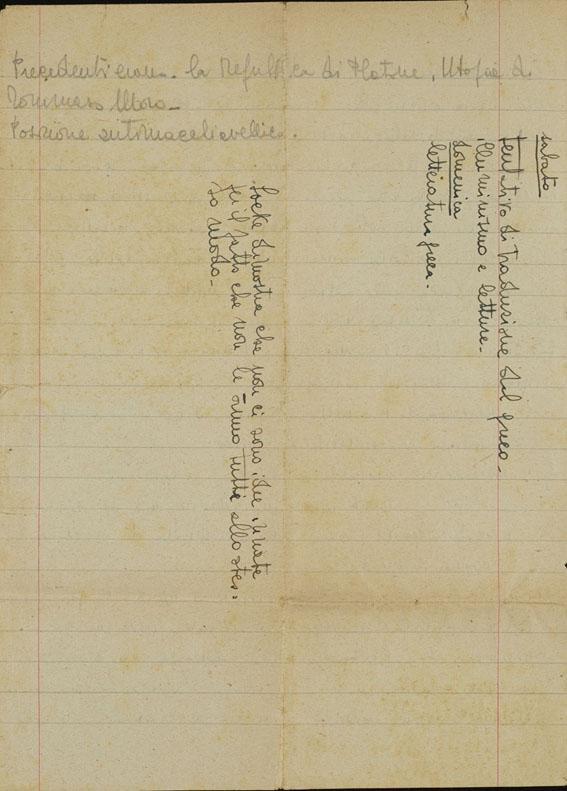 Precedenti erano - la Repubblica di Platone, Utopia di
Tommaso Moro -
Posizione antimachiavellica.
sabato
tentativo di traduzione dal greco -
illuminismo e letture -
domenica
letteratura greca -
Locke dimostra che non ci sono idee innate
per il fatto che non le ànno tutti allo stes-
so modo -